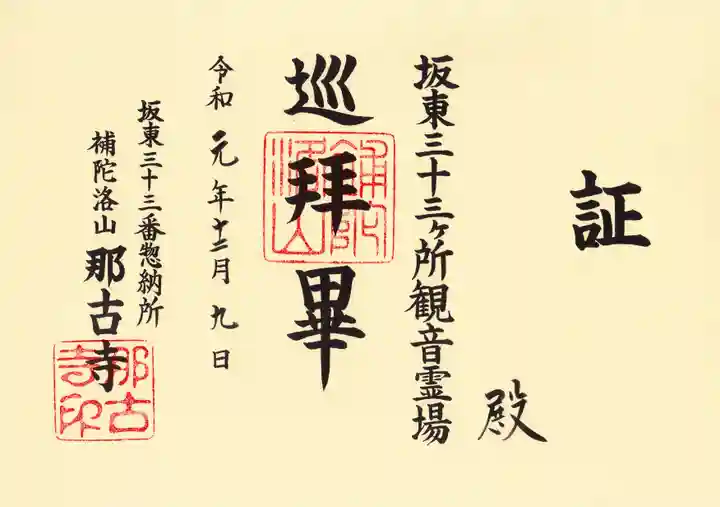 証
殿
坂東三十三ヶ所観音霊場
巡拝畢
令和元年十二月九日
坂東三十三番惣納所
補陀洛山那古寺
那古寺印